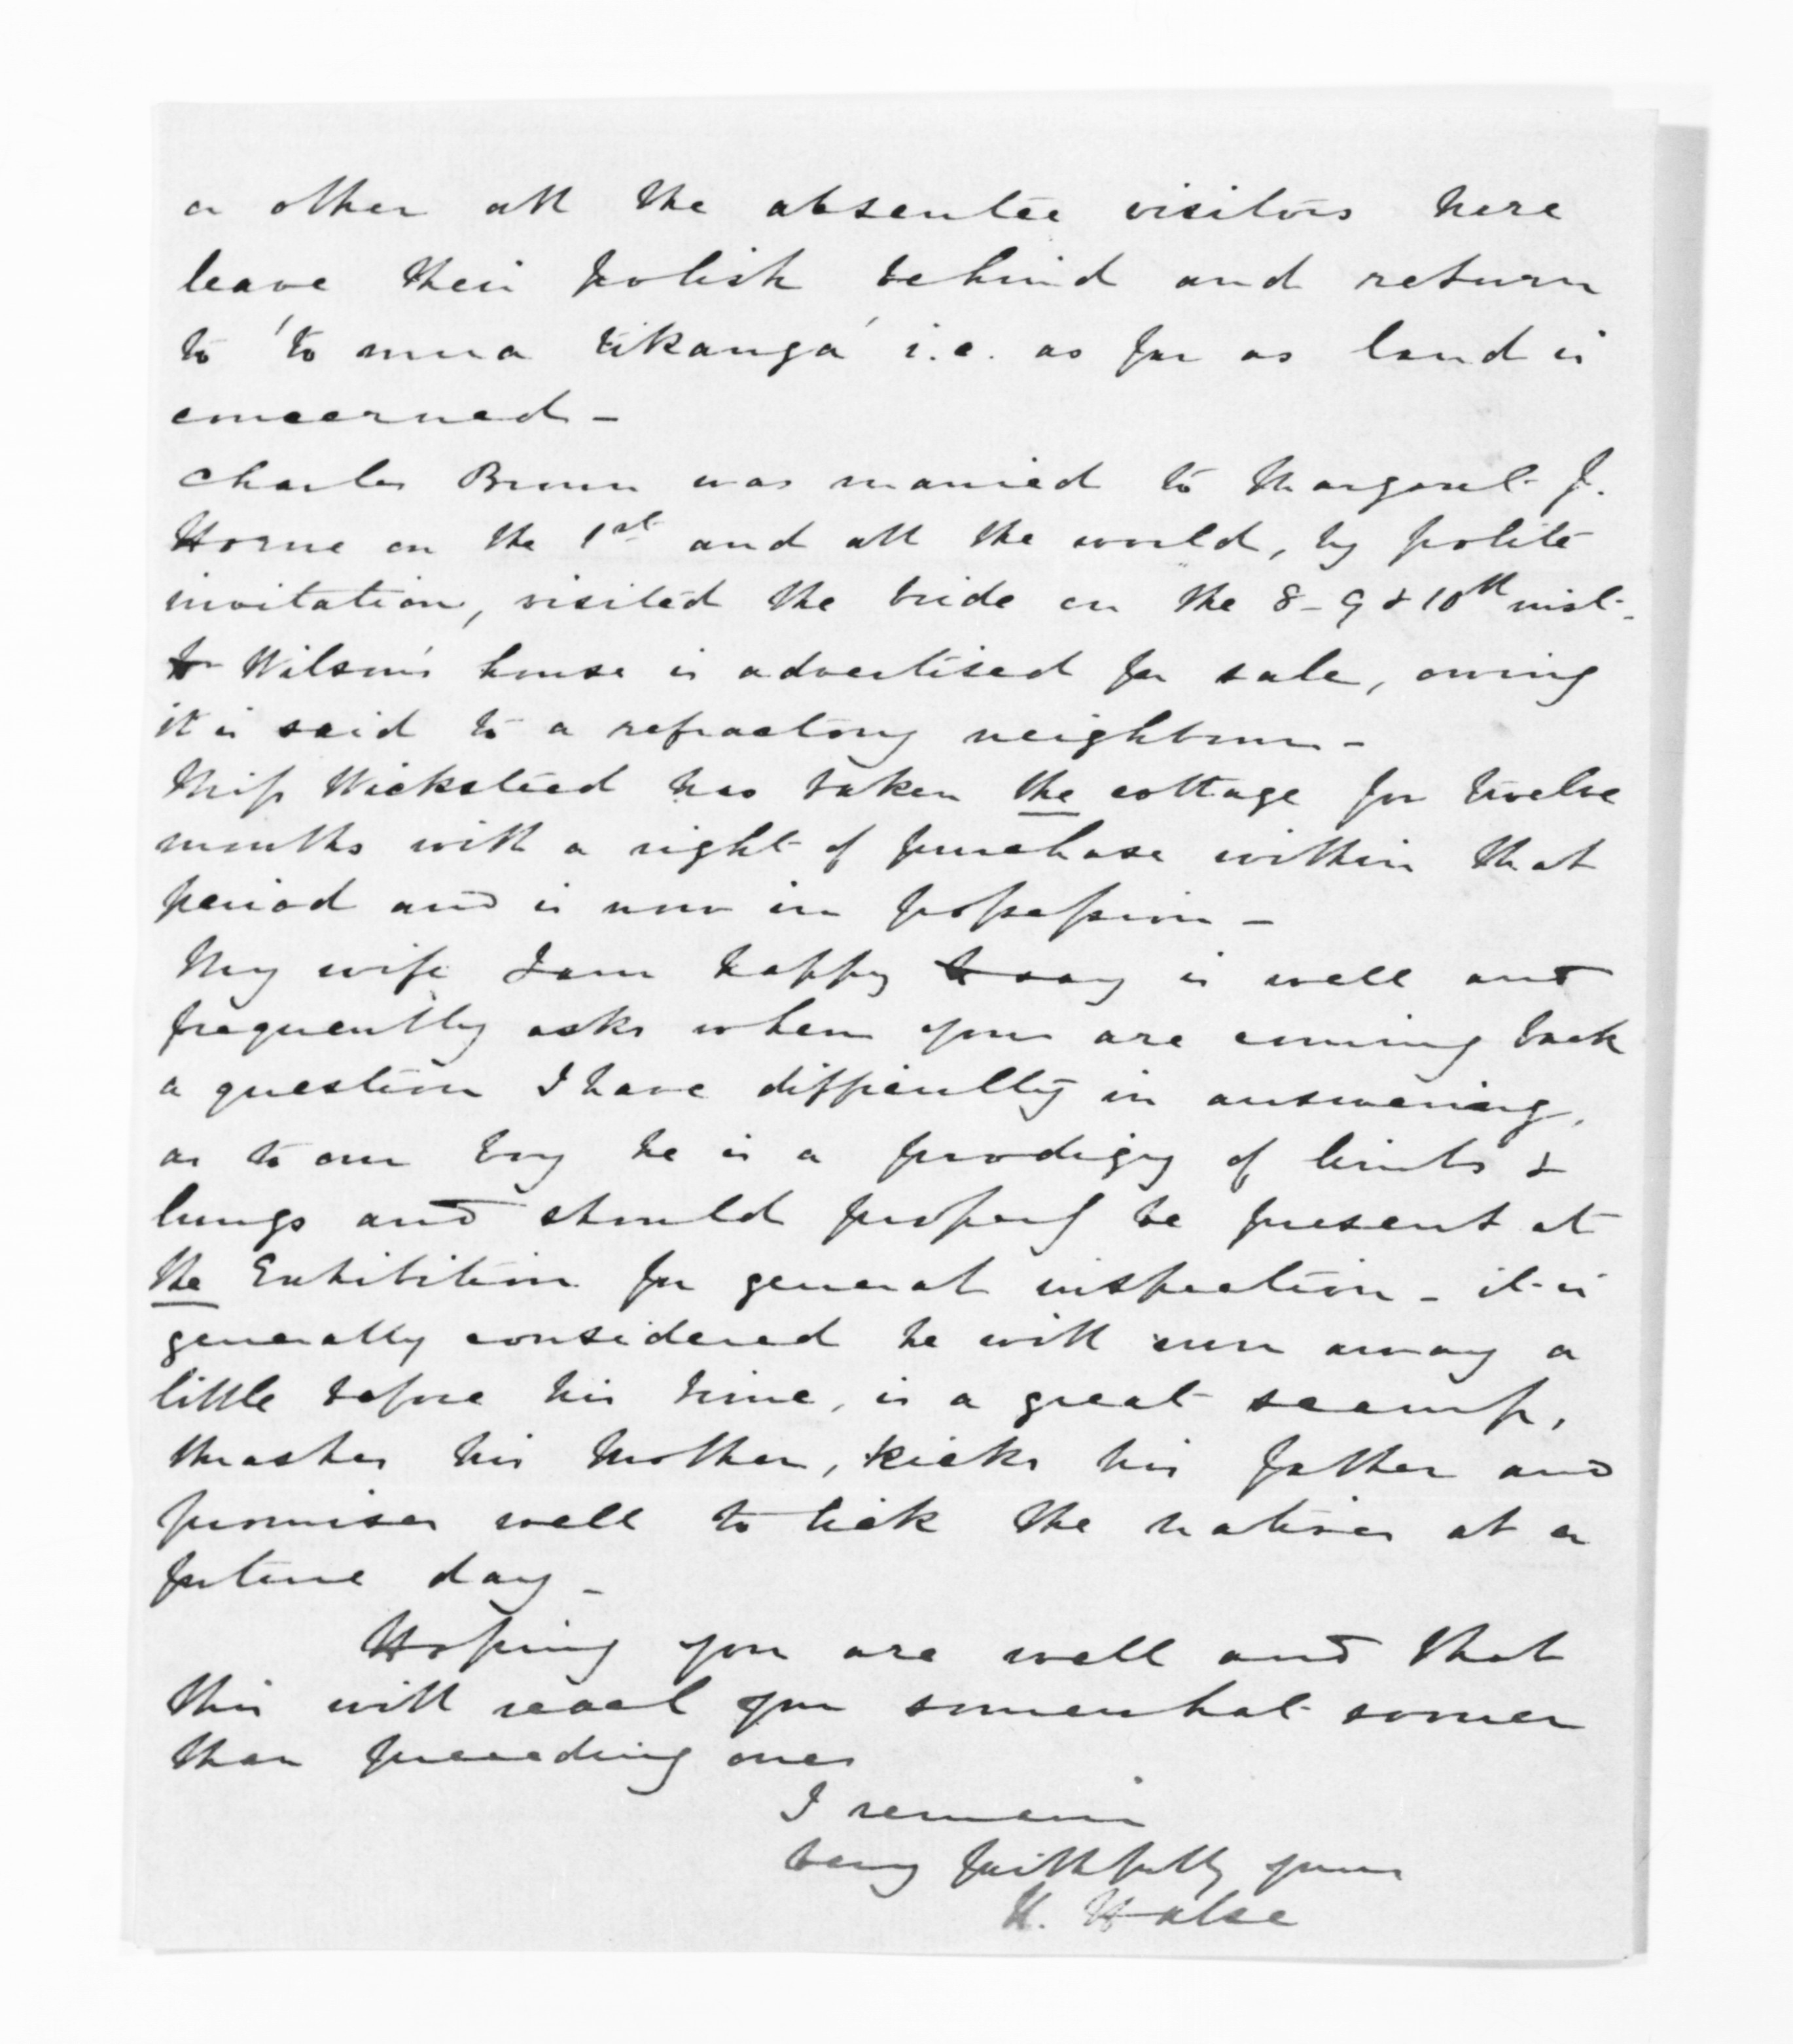 or other all the absentee visitors here
leave their polish behind and return
to 'to mua tikanga' i.e. as far as land is
concerned -
Charles Brown was married to Margaret J.
Horne on the 1st and all the world, by polite
invitation, visited the bride on the 8 - 9 & 10th inst -
Dr Wilson's house is advertised for sale, owing
it is said to a refractory neighbour -
Miss Wicksteed has taken the cottage for twelve
months with a right of purchase within that
period and is now in possession -
My wife I am happy to say is well and
frequently asks when you are coming back
a question I have difficulty in answering,
as to our boy he is a prodigy of limbs &
lungs and should properly be present at
the Exhibition for general inspection - it is
generally considered he will run away a
little before his time, is a great scamp,
thrashes his Mother, kicks his father and
promises well to lick the natives at a
future day -
Hoping you are well and that
this will reach you somewhat sooner
than preceding ones
I remain
very faithfully yours
H. Halse